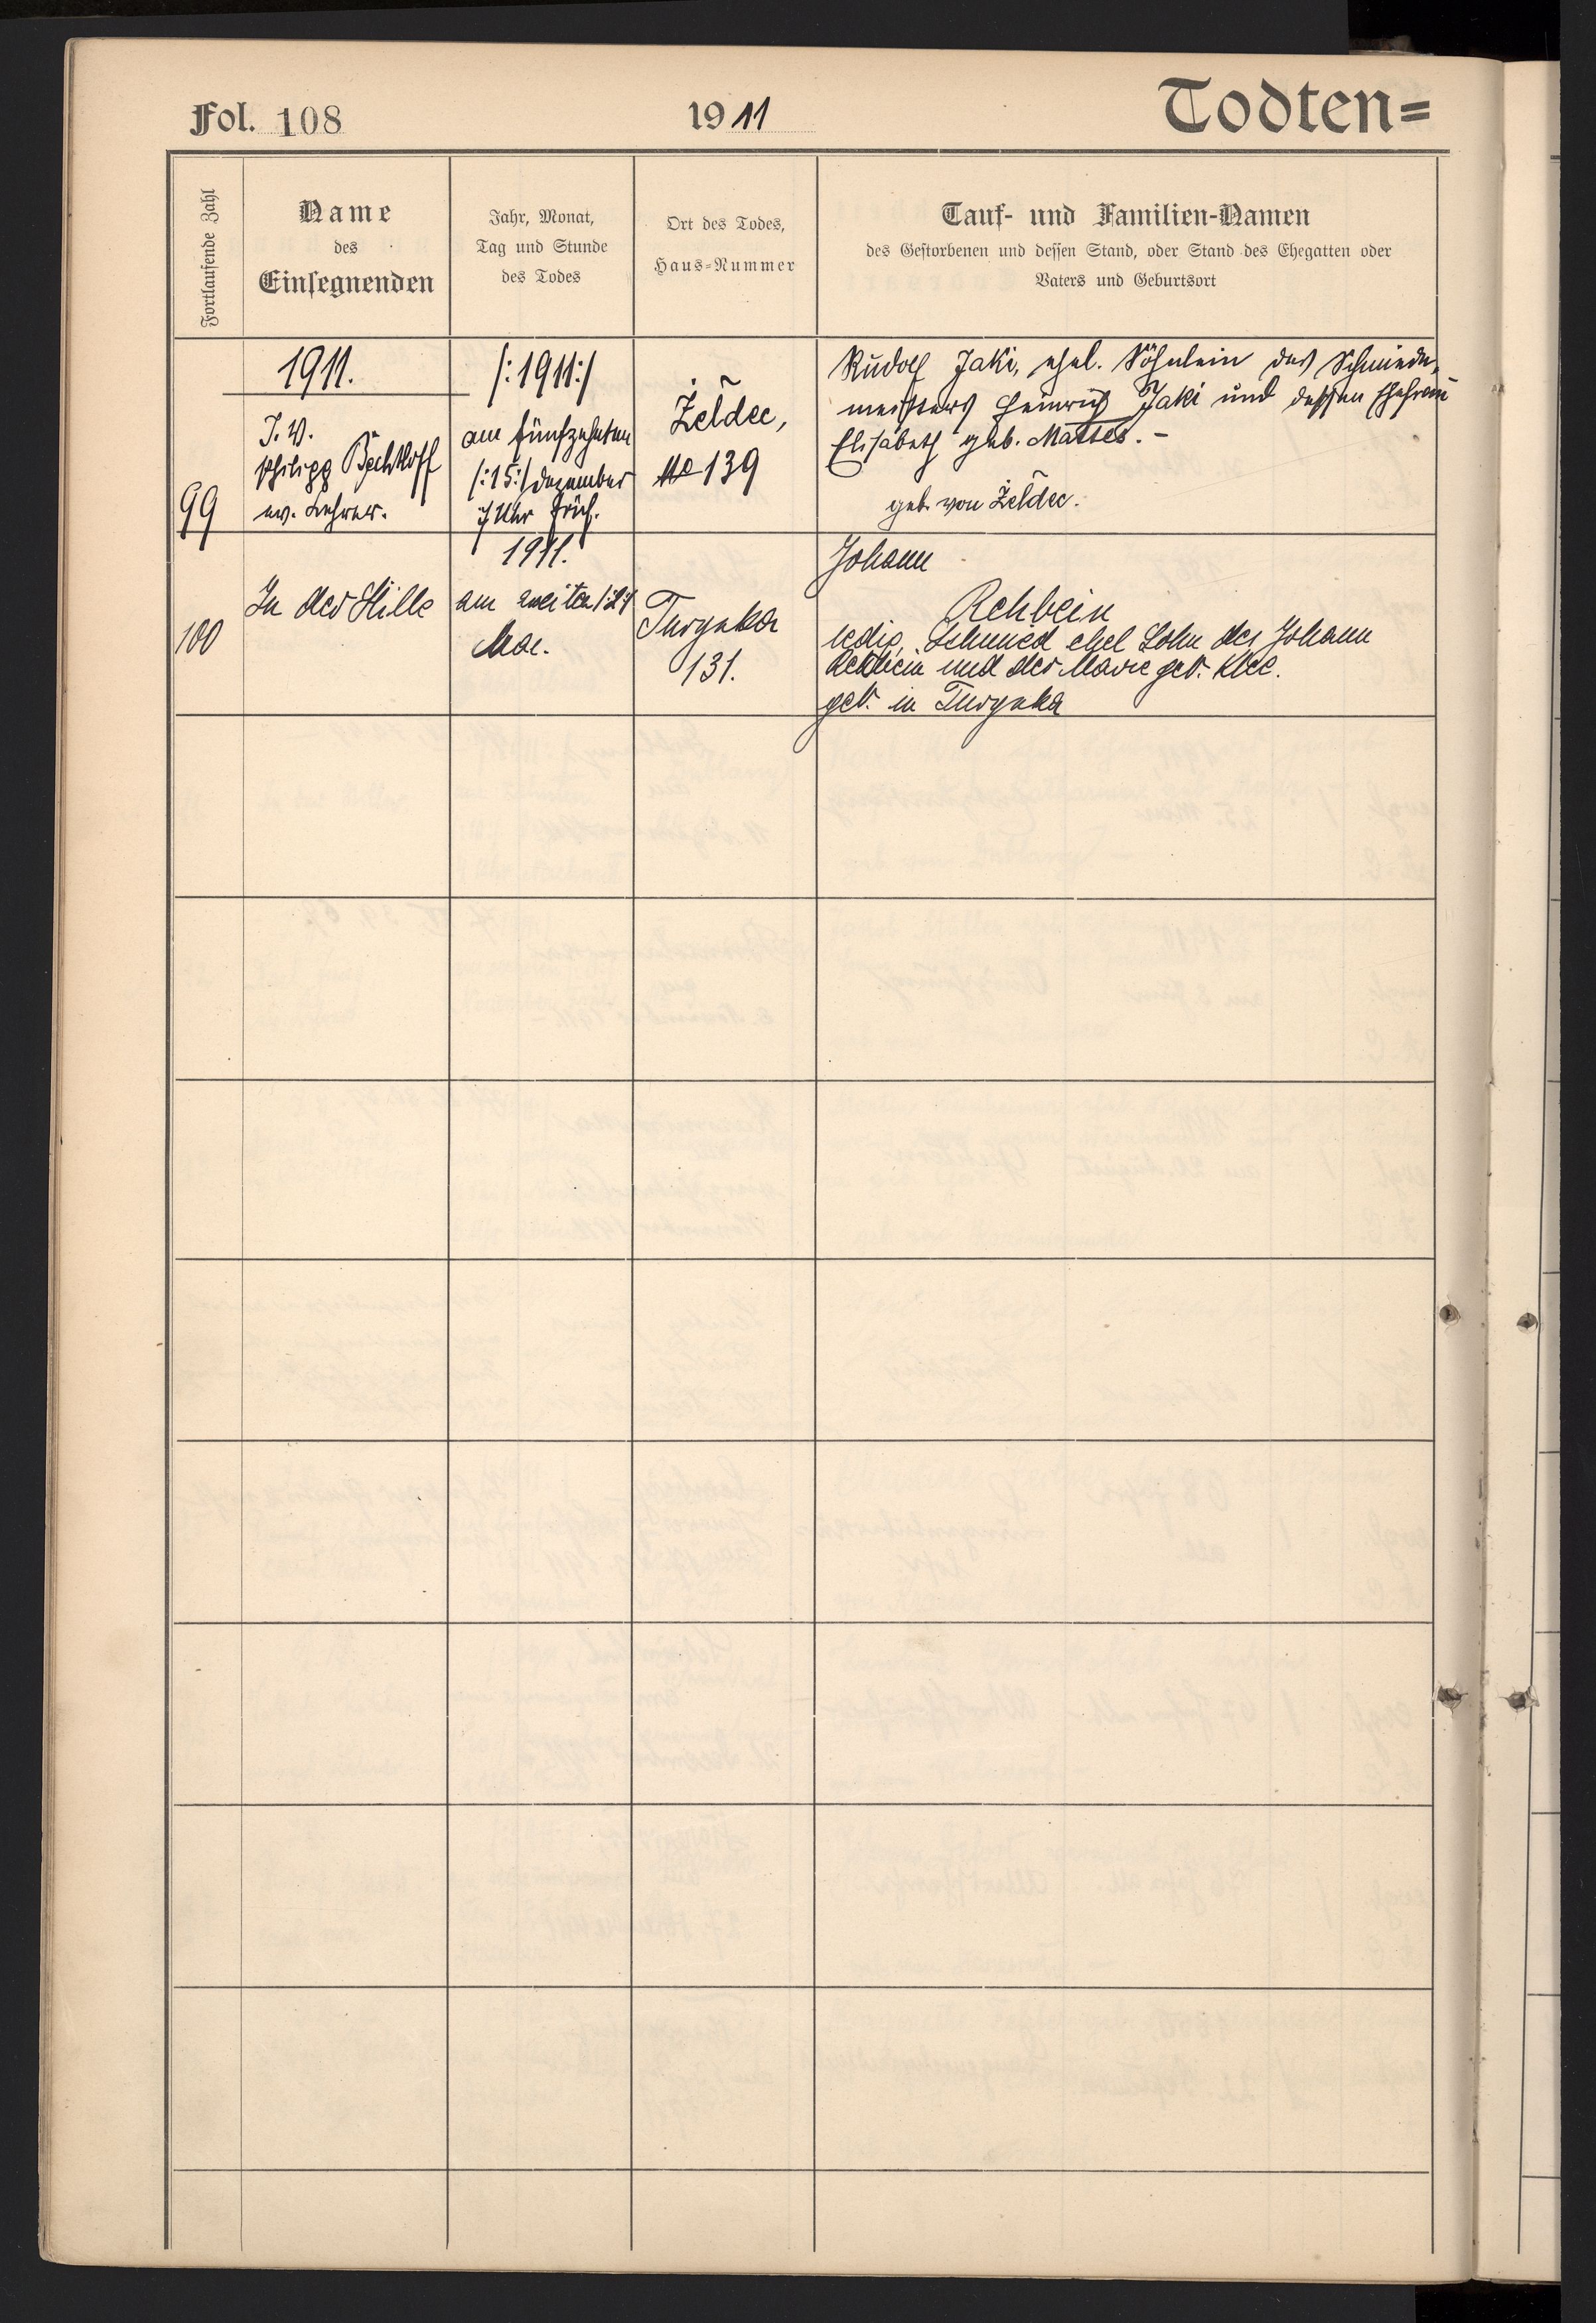 Fol. 108
1911
Todten=
Fortlaufende Zahl
Name
des
Einsegnenden
Jahr, Monat,
Tag und Stunde
des Todes
Ort des Todes,
Haus-Nummer
Tauf- und Familien-Namen
des Gestorbenen und dessen Stand, oder Stand des Ehegatten oder
Vaters und Geburtsort
99
1911.
I. V.
Philipp Bechtloff
ev. Lehrer.
/:1911:/
am fünfzehnten
/:15:/ Dezember
7 Uhr Früh.
Żeldec,
No 139
Rudolf Jaki, ehel. Söhnlein des Schmiede-
meisters Heinrich Jaki und dessen Ehefrau
Elisabeth geb. Mattes. -
geb. von Żeldec.
100
In der Stille
1911.
am zweiten /:2:/
Mai.
Turynka
131.
Johann
Rehbein
ledig, Schmied ehel Sohn des Johann
Rehbein und der Marie geb. Klee.
geb. in Turynka